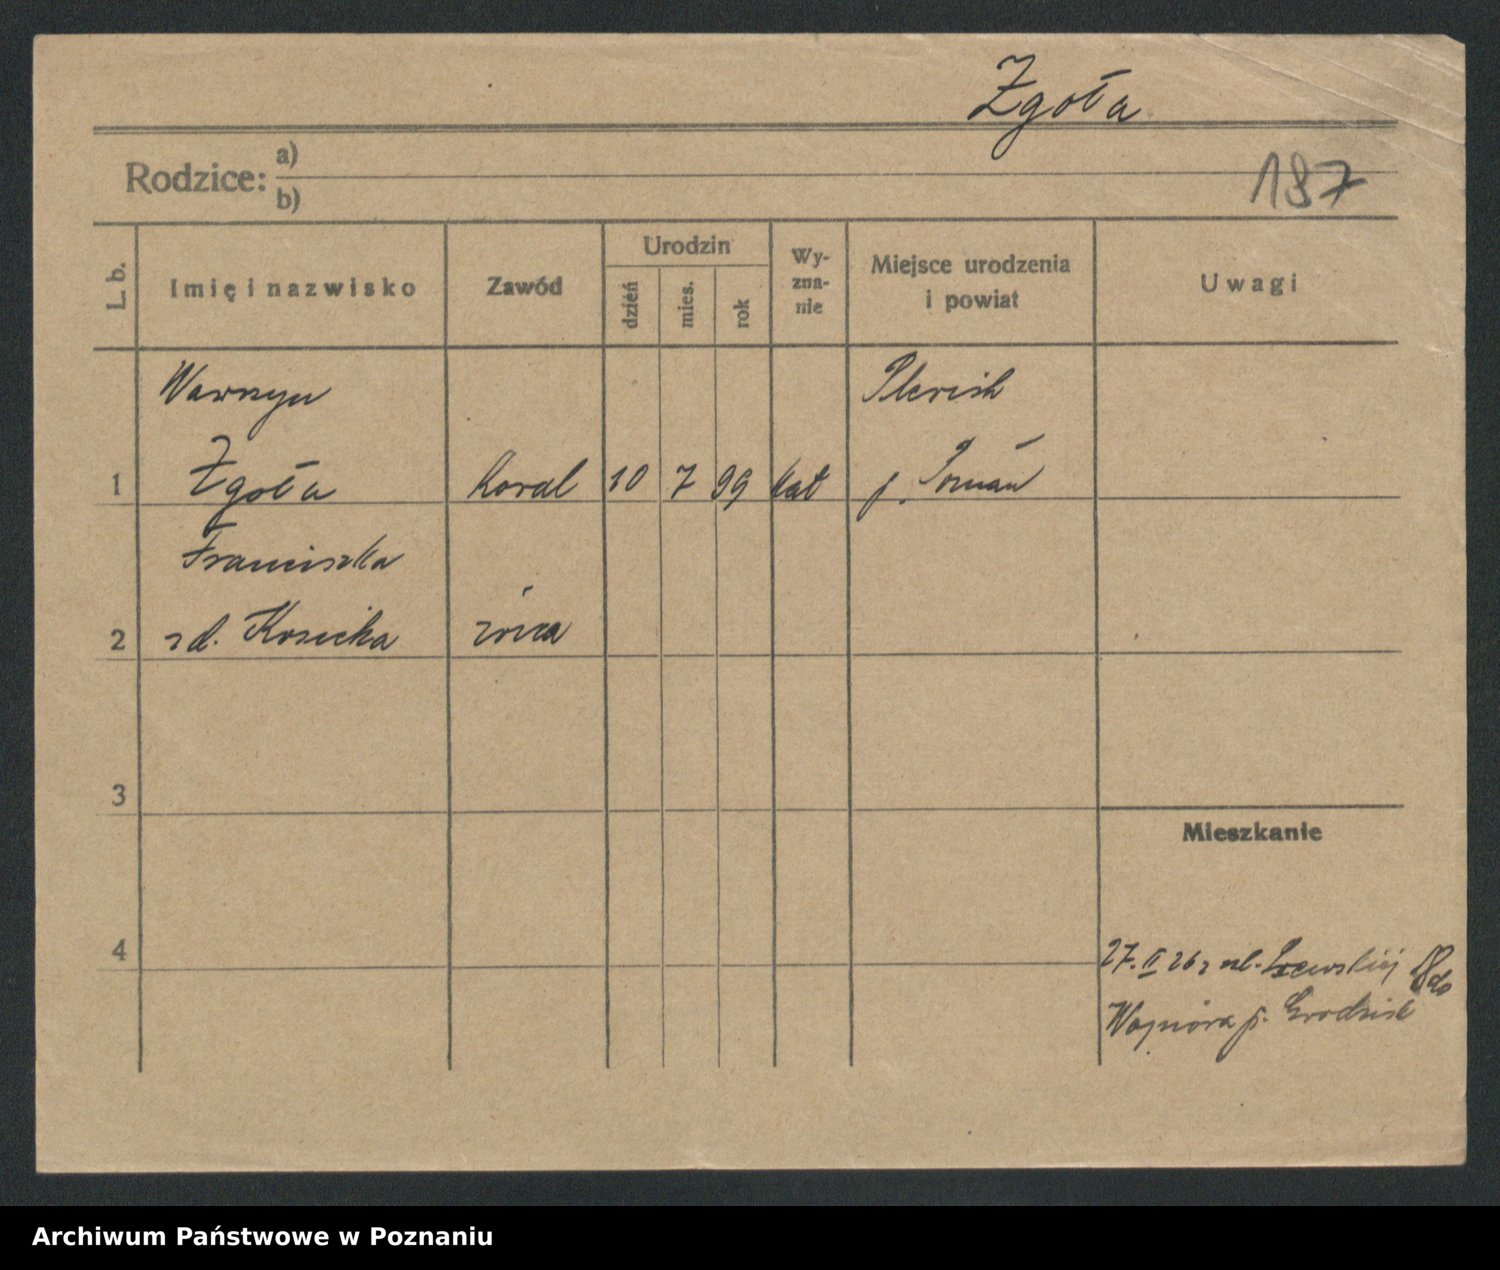 Zgoła
Rodzice: a)
b)
187
L. b.
Imię i nazwisko
Zawód
Urodzin
dzień
mies.
rok
Wy-
zna-
nie
Miejsce urodzenia
i powiat
Uwagi
Wawrzyn
Plewisk
1 Zgoła Kowal 10 7 99 kat p. Poznań
Franciszka
2 z d. Kosicka żona
3
Mieszkanie
4
27. II 26 z ul. do
p. Grodzisk
Archiwum Państwowe w Poznaniu